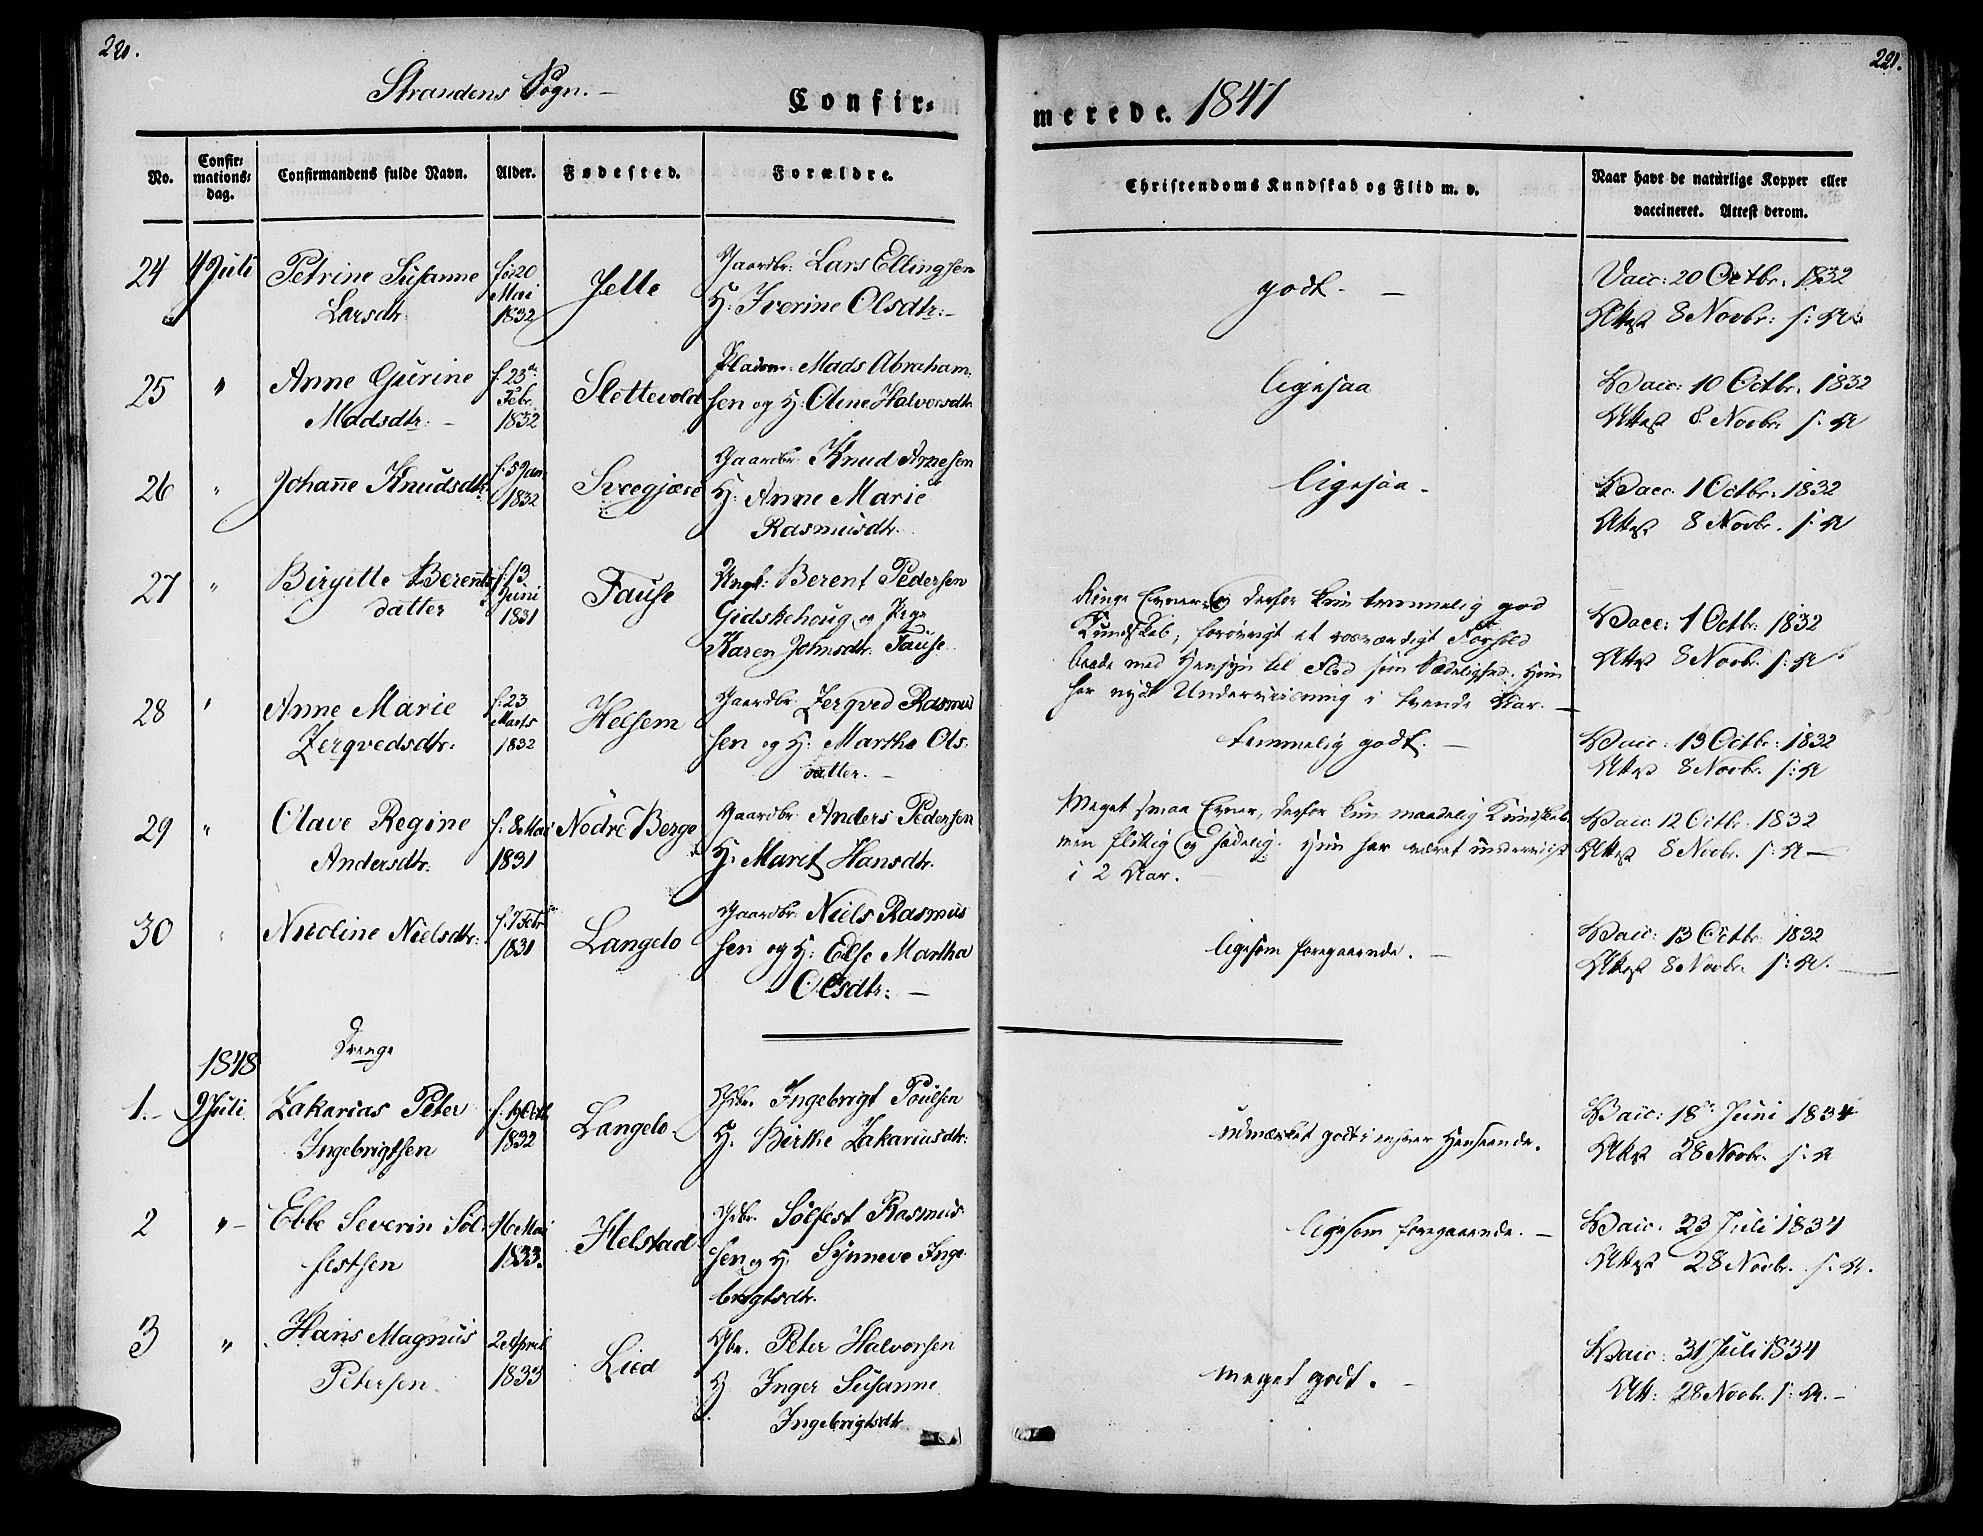 221.
221.
Strandens Sogn. –
Confir-
merede. 1847
No.
Confir-
mations-
dag.
Confirmandens fulde Navn.
Alder.
Fødested.
Forældre.
Christendoms Kundskab og Flid m. v.
Naar havt de natùrlige Kopper eller
vaccineret. Attest derom.
24 4 Juli Petrine Susanne
Larsdtr.
20
Mai
1832
Gaardbr: Lars Ellingsen
H: Iverine Olsdtr: –
godt. –
Vacc: 20 Octbr. 1832
Attest 8 Novbr: s: A.
25 " Anne Gurine
Madsdtr: –
f. 23de
Febr.
1832
Slettevold
Pladsm: Mads Abraham-
sen og H: Oline Halvorsdtr.
ligesaa
Vacc: 10 Octbr. 1832
Attest 8 Novbr. s: A
26 " Johanne Knudsdtr.
f. 5 Jan.
1832
Gaardbr. Knud Arnesen
H: Anne Marie
Rasmusdtr.
ligesaa.
Vacc: 1 Octbr. 1832
Attest 8 Novbr. s: A
27 " Birgitte Berents-
datter
f. 13
Juni
1831
Fause
Ungk: Berent Pedersen
Gidskehoug og Pige
Karen Johnsdtr. Fause
Ringe Evner og derfor kun temmelig god
Kundskab, forøvrigt et roesværdigt Forhold
baade med Hensyn til Flid som Sædelighed. Hun
har nydt Underviisning i tvende Aar. –
Vacc: 1 Octbr. 1832
Attest 8 Novbr. s: A
28 " Anne Marie
Zerqvedsdtr.
f. 23
Marts
1832
Helsem
Gaardbr. Zerqved Rasmus-
sen og H: Martha Ols-
datter. –
temmelig godt. –
Vacc: 13 Octbr: 1832
Attest 8 Novbr. s: A
29 " Olave Regine
Andersdtr.
f. 8 Mai
1831
Nödre Berge
Gaardbr. Anders Pedersen
H: Maret Hansdtr.
Meget smaa Evner, derfor kun maadelig Kundskab
men flittig og sædelig. Hun har været underviist
i 2 Aar.
Vacc: 12 Octbr. 1832
Attest 8 Novbr. s: A –
30 " Nicoline Nielsdtr:
f. 7 Febr
1831
Langelo
Gaardbr. Niels Rasmus-
sen og H: Else Martha
Olsdtr: –
ligesom foregaaende. –
Vacc: 13 Octbr. 1832
Attest 8 Novbr. s: A. –
1848
Drenge
1. – 9 Juli Zakarias Peter
Ingebrigtsen
1832
Langelo
Gbr. Ingebrigt Poulsen
H. Birthe Zakariasdtr.
udmærket godt i enhver Henseende.
Vacc: 18de Juni 1834
Attest 28 Novbr. s: A
2 " – Ebbe Severin Söl-
festsen
16 Mai
1833.
Helstad
Gbr. Sölfest Rasmus-
sen og H. Synneve Inge-
brigtsdtr.
ligesom foregaaende. –
Vacc: 23 Juli 1834
Attest 28 Novbr. s: A.
3 " Hans Magnus
Petersen.
2 April
1833
Lied
Gbr. Peter Halvorsen
H. Inger Susanne
Ingebrigtsdtr.
meget godt. –
Vacc: 31 Juli 1834
Att: 28 Novbr. s: A. –